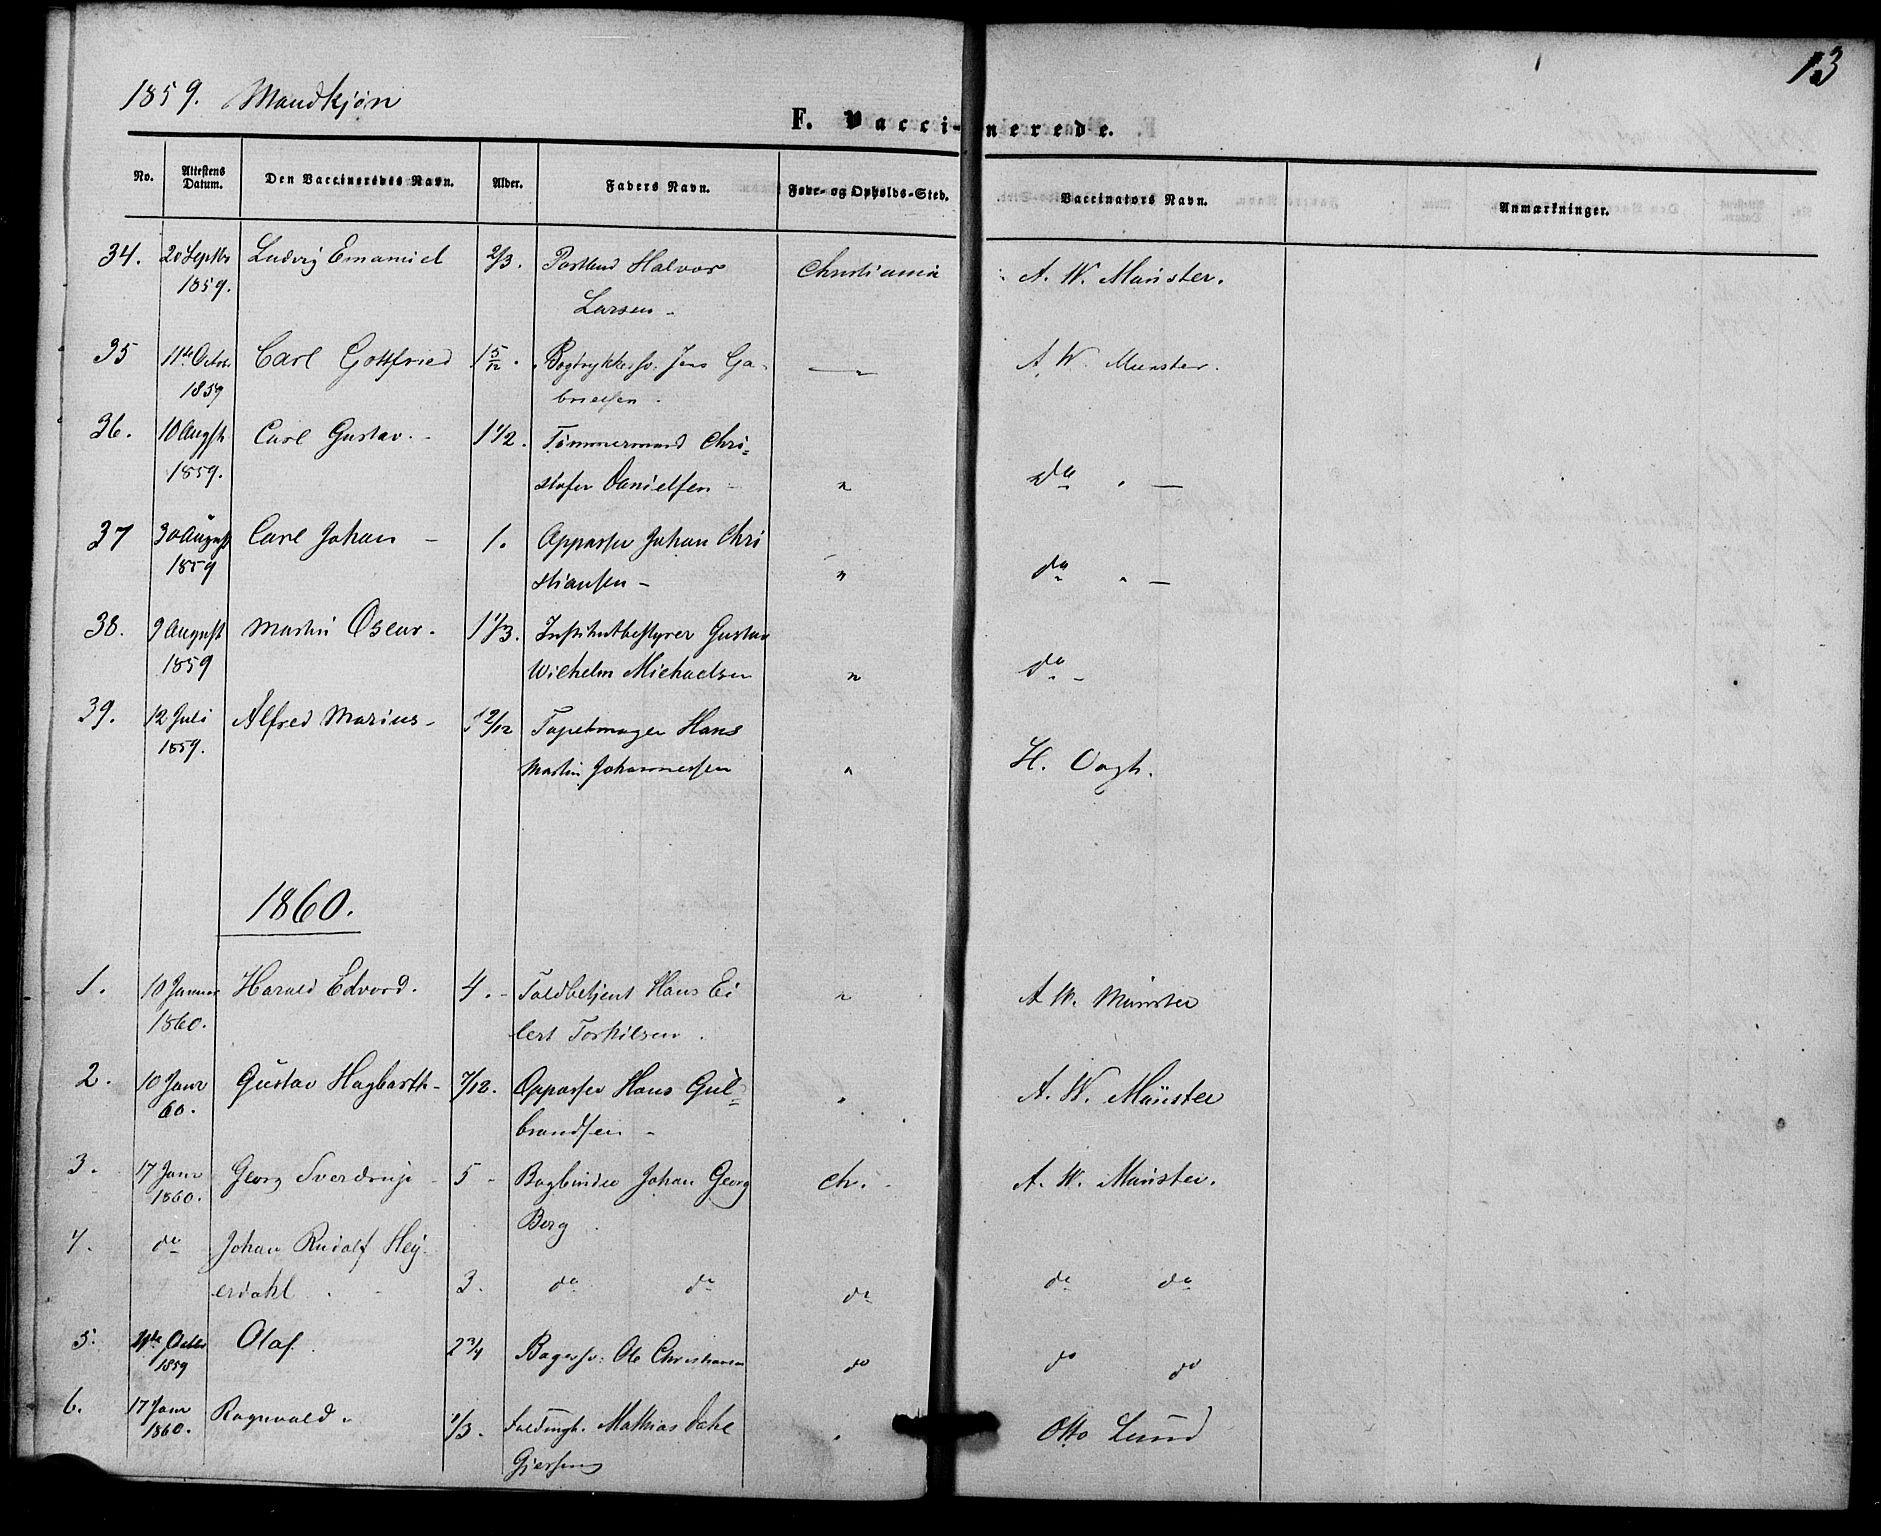 13
1859. Mandkjøn
F. Vaccinerede.
No. Attestens Datum. Den Vaccineredes Navn. Alder. Faders Navn. Føde- og Opholds-Sted. Vaccinators Navn. Anmærkninger.
34. 20 Septbr Ludvig Emanuel 2/3. Halvor Christiania A. W. Münster.
1859. Larsen
35 11te Octob. Carl Gottfried 1 5/12. Bogtrykkersv. Jens Ga- — " A. W. Münster.
1859 brielsen.
36. 10 Augst Carl Gustav. 1 1/2. Tømmermand Chri-
1859. stofer Danielsen " do " —
37 30 August Carl Johan — 1. Oppasser Johan Chri
1859 stiansen — " do " —
38. 9 August Martin Oscar. 1 1/3. Institutbestyrer Gustav
1859 Wilhelm Michaelsen " do -
39. 12 Juli Alfred Marius - 1 2/12 Tapetmager Hans
1859. Martin Johannessen " H. Vogt.
1860.
1. 10 Januar Harald Edvard. 4. Toldbetjent Hans Ei " A. W. Münster
1860. lert Torkilsen.
2. 10 Janr Gustav Hagbarth - 7/12. Oppasser Hans Gul- " A. W. Münster
60. brandsen -
3. 17 Janr Georg Sverdrup - 5 - Bogbinder Johan Georg Ch. - A. W. Münster.
1860. Berg
4. do Johan Rudolf Hey-
erdahl 3. do do do do do
5. Octbr Olaf. 2 3/4 Bagersv: Ole Christiansen do do do
1859
6. 17 Janr Ragnvald. 1/3. Mathias Dahl " Otto Lund
1860.